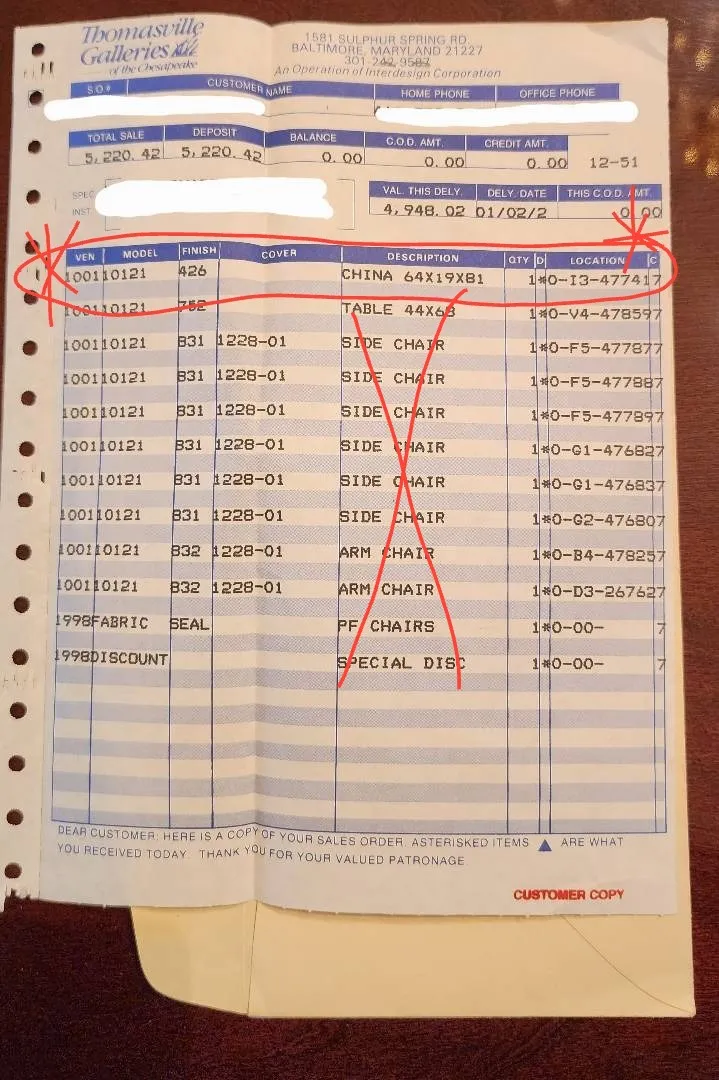 Thomasville
Galleries
of the Chesapeake
1581 SULPHUR SPRING RD.
BALTIMORE, MARYLAND 21227
301-242-9587
An Operation of Interdesign Corporation
S.O.# CUSTOMER NAME HOME PHONE OFFICE PHONE
TOTAL SALE DEPOSIT BALANCE C.O.D. AMT. CREDIT AMT.
5,220.42 5,220.42 0.00 0.00 0.00 12-51
SPEC
INST
VAL. THIS DELY. DELY. DATE THIS C.O.D. AMT.
4,948.02 01/02/2 0.00
VEN MODEL FINISH COVER DESCRIPTION QTY D LOCATION C
1001 10121 426 CHINA 64X19X81 1*0-I3-47741 7
1001 10121 752 TABLE 44X68 1*0-V4-47859 7
1001 10121 831 1228-01 SIDE CHAIR 1*0-F5-47787 7
1001 10121 831 1228-01 SIDE CHAIR 1*0-F5-47788 7
1001 10121 831 1228-01 SIDE CHAIR 1*0-F5-47789 7
1001 10121 831 1228-01 SIDE CHAIR 1*0-G1-47682 7
1001 10121 831 1228-01 SIDE CHAIR 1*0-G1-47683 7
1001 10121 831 1228-01 SIDE CHAIR 1*0-G2-47680 7
1001 10121 832 1228-01 ARM CHAIR 1*0-B4-47825 7
1001 10121 832 1228-01 ARM CHAIR 1*0-D3-26762 7
1998 FABRIC SEAL PF CHAIRS 1*0-00- 7
1998 DISCOUNT SPECIAL DISC 1*0-00- 7
DEAR CUSTOMER: HERE IS A COPY OF YOUR SALES ORDER. ASTERISKED ITEMS ▲ ARE WHAT
YOU RECEIVED TODAY. THANK YOU FOR YOUR VALUED PATRONAGE.
CUSTOMER COPY